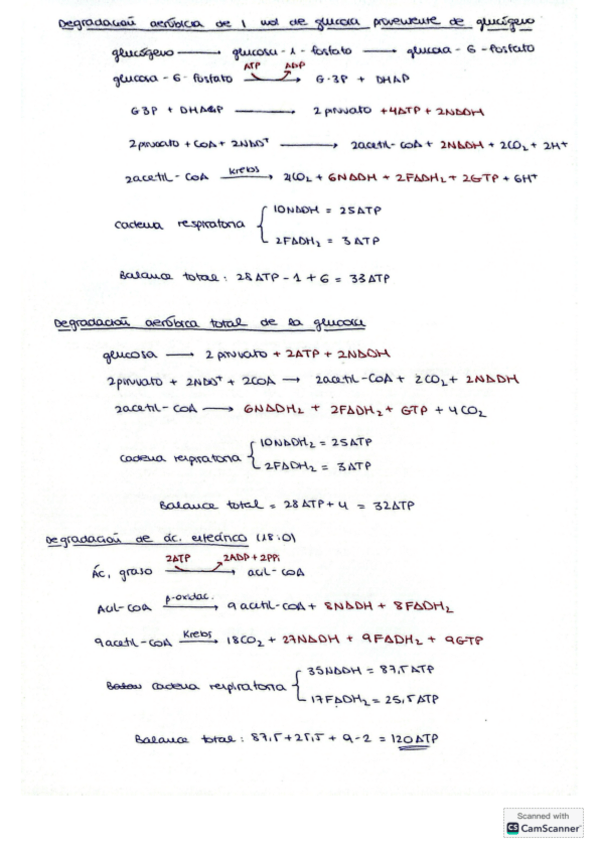 Degradación aeróbica de 1 mol de glucosa proveniente de glucógeno
glucógeno → glucosa-1-fosfato → glucosa-6-fosfato
ATP ADP
glucosa-6-fosfato → G3P + DHAP
G3P + DHAP → 2 piruvato + 4ATP + 2NADH
2 piruvato + CoA + 2NAD⁺ → 2acetil-CoA + 2NADH + 2CO₂ + 2H⁺
2acetil-CoA Krebs → 2CO₂ + 6NADH + 2FADH₂ + 2GTP + 6H⁺
cadena respiratoria { 10NADH = 25ATP
2FADH₂ = 3ATP
Balance total: 28ATP - 1 + 6 = 33ATP
Degradación aeróbica total de la glucosa
glucosa → 2 piruvato + 2ATP + 2NADH
2piruvato + 2NAD⁺ + 2CoA → 2acetil-CoA + 2CO₂ + 2NADH
2acetil-CoA → 6NADH₂ + 2FADH₂ + GTP + 4CO₂
cadena respiratoria { 10NADH₂ = 25ATP
2FADH₂ = 3ATP
Balance total = 28ATP + 4 = 32ATP
Degradación de ác. esteárico (18:0)
2ATP 2ADP + 2PPi
Ác. graso → acil-CoA
Acil-CoA β-oxidac. → 9 acetil-CoA + 8NADH + 8FADH₂
9acetil-CoA Krebs → 18CO₂ + 27NADH + 9FADH₂ + 9GTP
cadena respiratoria { 35NADH = 87,5ATP
17FADH₂ = 25,5ATP
Balance total: 87,5 + 25,5 + 9 - 2 = 120ATP
Scanned with
CS CamScanner